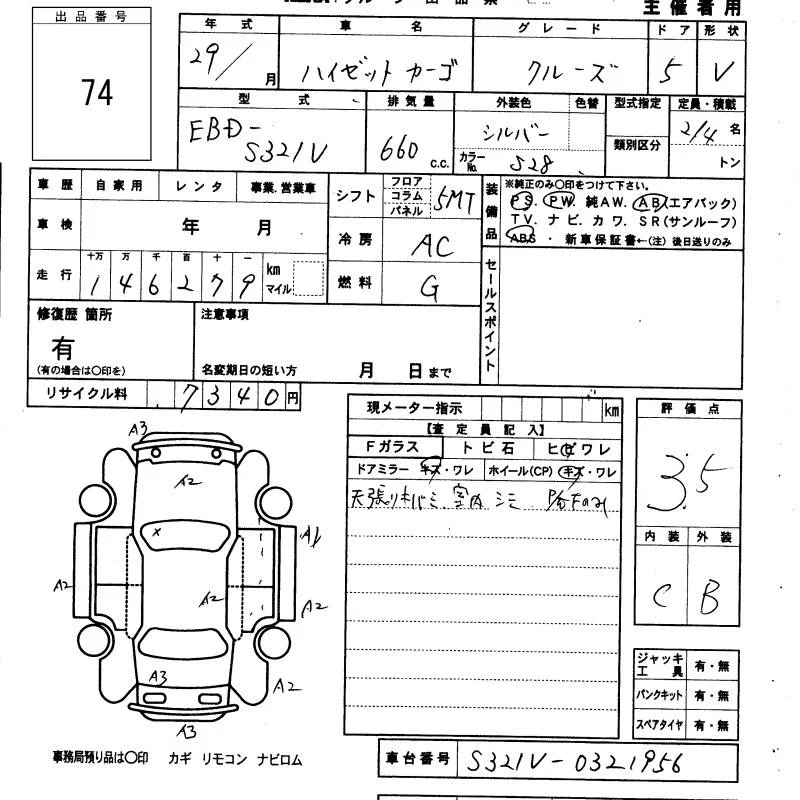 主催者用
出品番号
74
年式 車名 グレード ドア 形状
29/ 月 ハイゼットカーゴ クルーズ 5 V
型式 排気量 外装色 色替 型式指定 定員・積載
EBD-
S321V
660 c.c.
シルバー
カラーNo. S28
類別区分
2/4 名
トン
車歴 自家用 レンタ 事業.営業車
車検 年 月
走行 十万 万 千 百 十 一
1 4 6 2 7 9 km マイル
シフト フロア コラム パネル 5MT
冷房 AC
燃料 G
装備品
※純正のみ〇印をつけて下さい。
PS. PW. 純AW. AB(エアバック)
TV. ナビ. カワ. SR(サンルーフ)
ABS ・ 新車保証書←(注) 後日送りのみ
セールスポイント
修復歴 箇所
有
(有の場合は〇印を)
注意事項
名変期日の短い方 月 日まで
リサイクル料 7340円
現メーター指示 km
【査定員記入】
Fガラス トビ石 ヒビワレ
ドアミラー キズ・ワレ ホイール(CP) キズ・ワレ
天張り 室内 シミ
評価点
3.5
内装 外装
C B
A3
A2
X
A1
A2
A2
A2
A3
A2
A3
ジャッキ工具 有・無
パンクキット 有・無
スペアタイヤ 有・無
事務局預り品は〇印 カギ リモコン ナビロム
車台番号 S321V-0321956